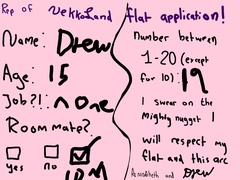 Rep of Nekkoland flat application!
Name: Drew
Age: 15
Job?!: none
Roommate?
yes no IDM
Number between
1-20 (except
for 10): 19
I swear on the
Mighty nugget I
will respect my
flat and this arc
and Drew